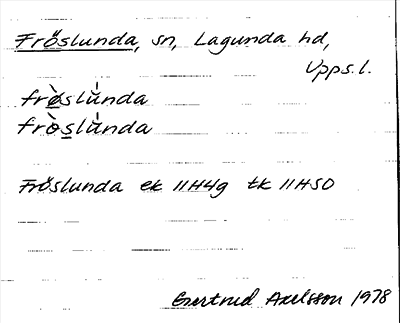 Fröslunda, sn, Lagunda hd,
Upps.l.
frø̀slu̇̀nda
frö̀slùnda
Fröslunda ek 11H4g tk 11HSO
Gertrud Axelsson 1978